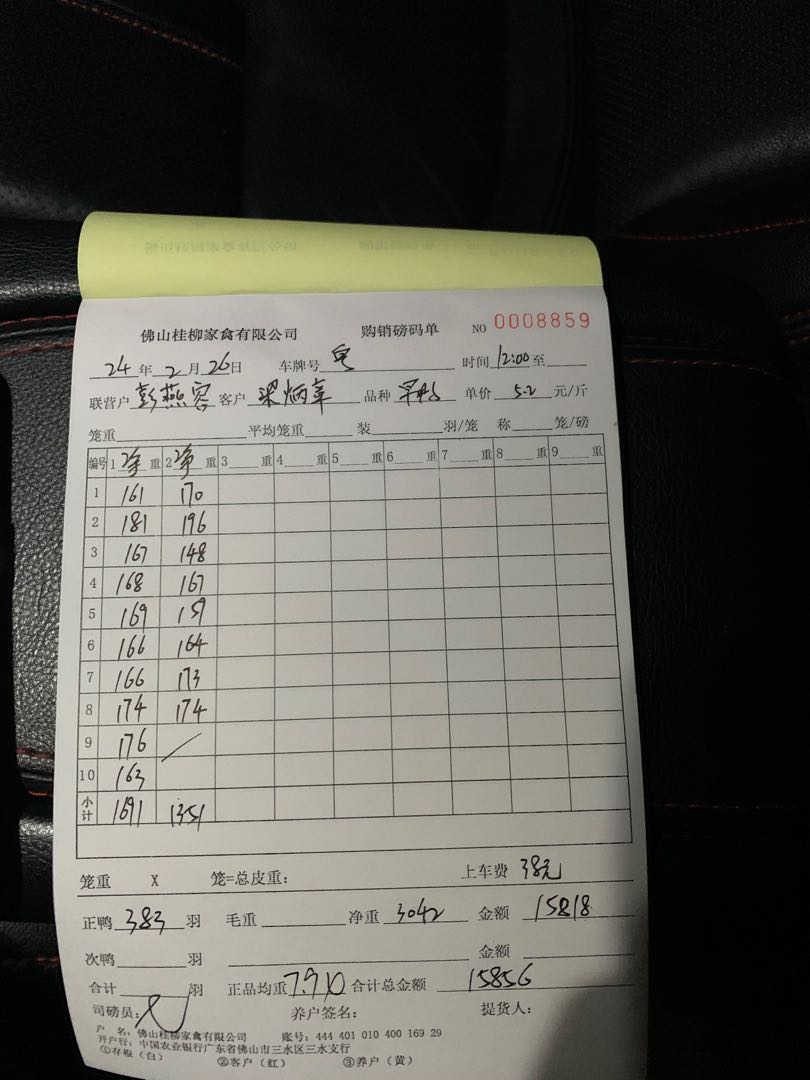 佛山桂柳家禽有限公司 购销磅码单 NO 0008859
24年2月26日 车牌号 时间12:00至
联营户 彭燕容 客户 梁炳章 品种 单价 5.2 元/斤
笼重 平均笼重 装 羽/笼 称 笼/磅
编号 1 净 重 2 净 重 3 重 4 重 5 重 6 重 7 重 8 重 9 重
1 161 170
2 181 196
3 167 148
4 168 167
5 169 159
6 166 164
7 166 173
8 174 174
9 176 /
10 163
小计 1691 1351
笼重 X 笼=总皮重: 上车费 38元
正鸭 383 羽 毛重 净重 3042 金额 15818
次鸭 羽 金额
合计 羽 正品均重 7.9 合计总金额 15856
司磅员: 养户签名: 提货人:
户 名: 佛山桂柳家禽有限公司 账号: 444 401 010 400 169 29
开户行: 中国农业银行广东省佛山市三水区三水支行
①存根(白) ②客户(红) ③养户(黄)